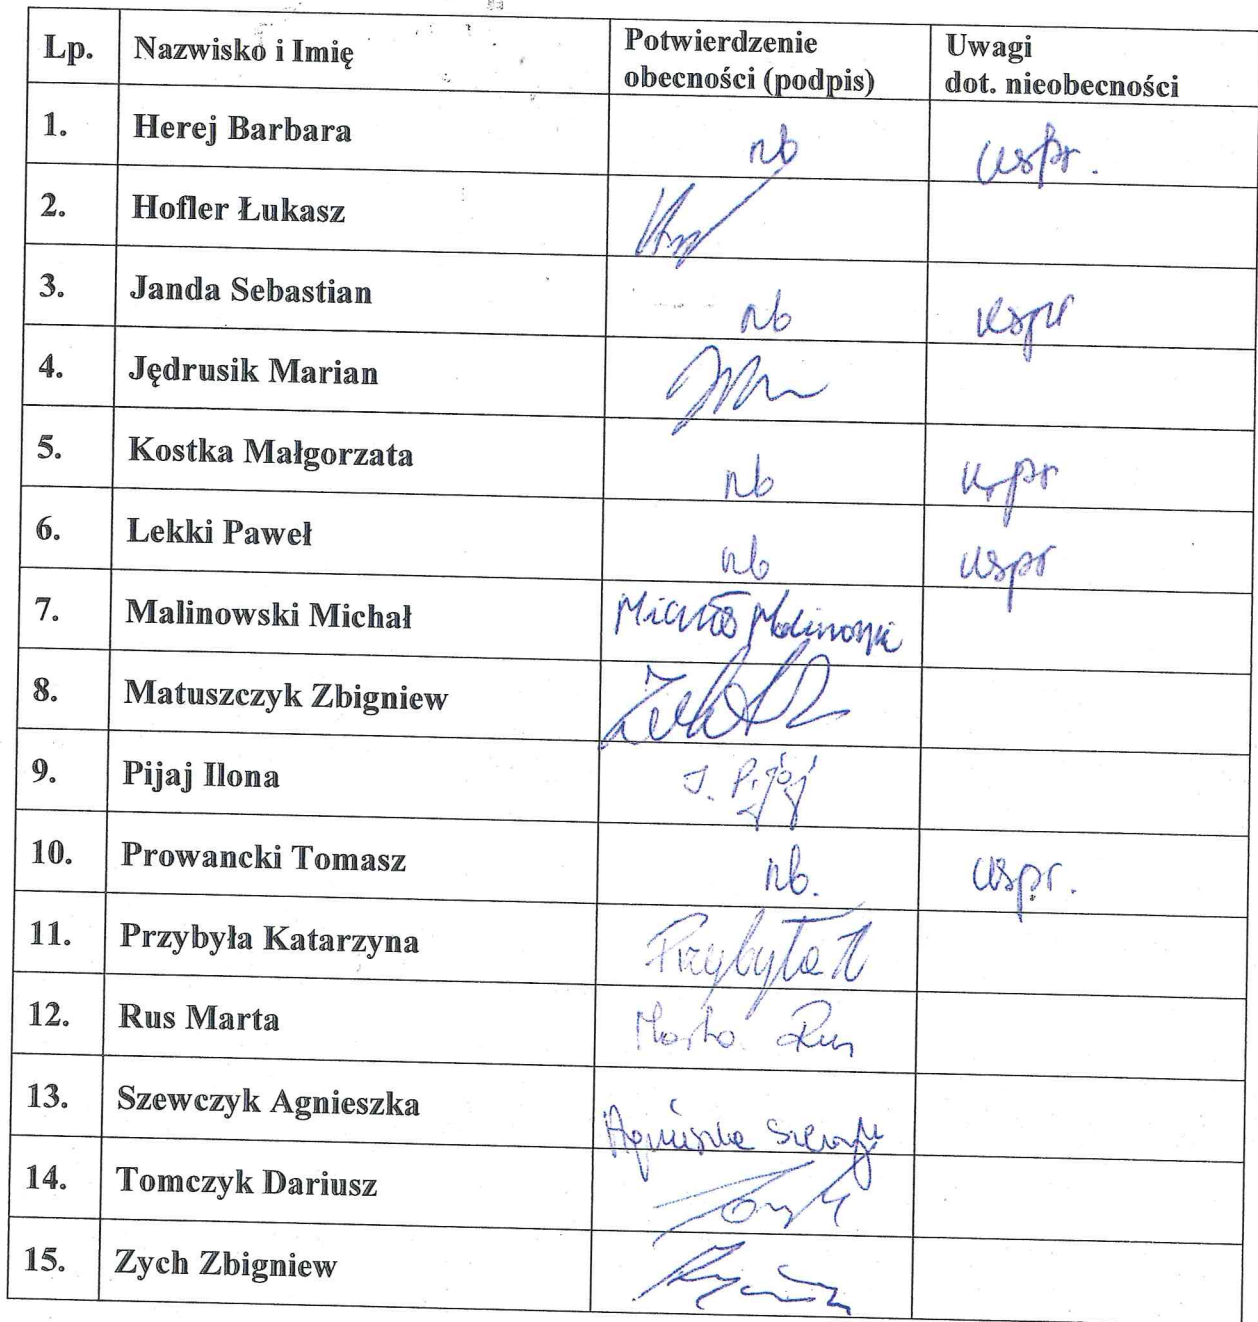 Lp. Nazwisko i Imię Potwierdzenie obecności (podpis) Uwagi dot. nieobecności
1. Herej Barbara nb uspr.
2. Hofler Łukasz
3. Janda Sebastian nb uspr
4. Jędrusik Marian
5. Kostka Małgorzata nb uspr
6. Lekki Paweł nb uspr
7. Malinowski Michał Michał Malinowski
8. Matuszczyk Zbigniew
9. Pijaj Ilona I. Pijaj
10. Prowancki Tomasz nb. uspr.
11. Przybyła Katarzyna Przybyła K
12. Rus Marta Marta Rus
13. Szewczyk Agnieszka Agnieszka Szewczyk
14. Tomczyk Dariusz
15. Zych Zbigniew